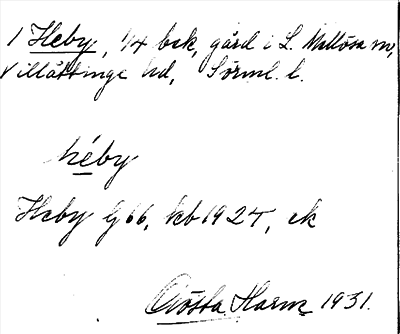 1 Heby, 1/4 bsk, gård i L. Mellösa sn,
Villåttinge hd, Sörml. l.
héby
Heby G 66, kb 1927, ek
Gösta Harm 1931.